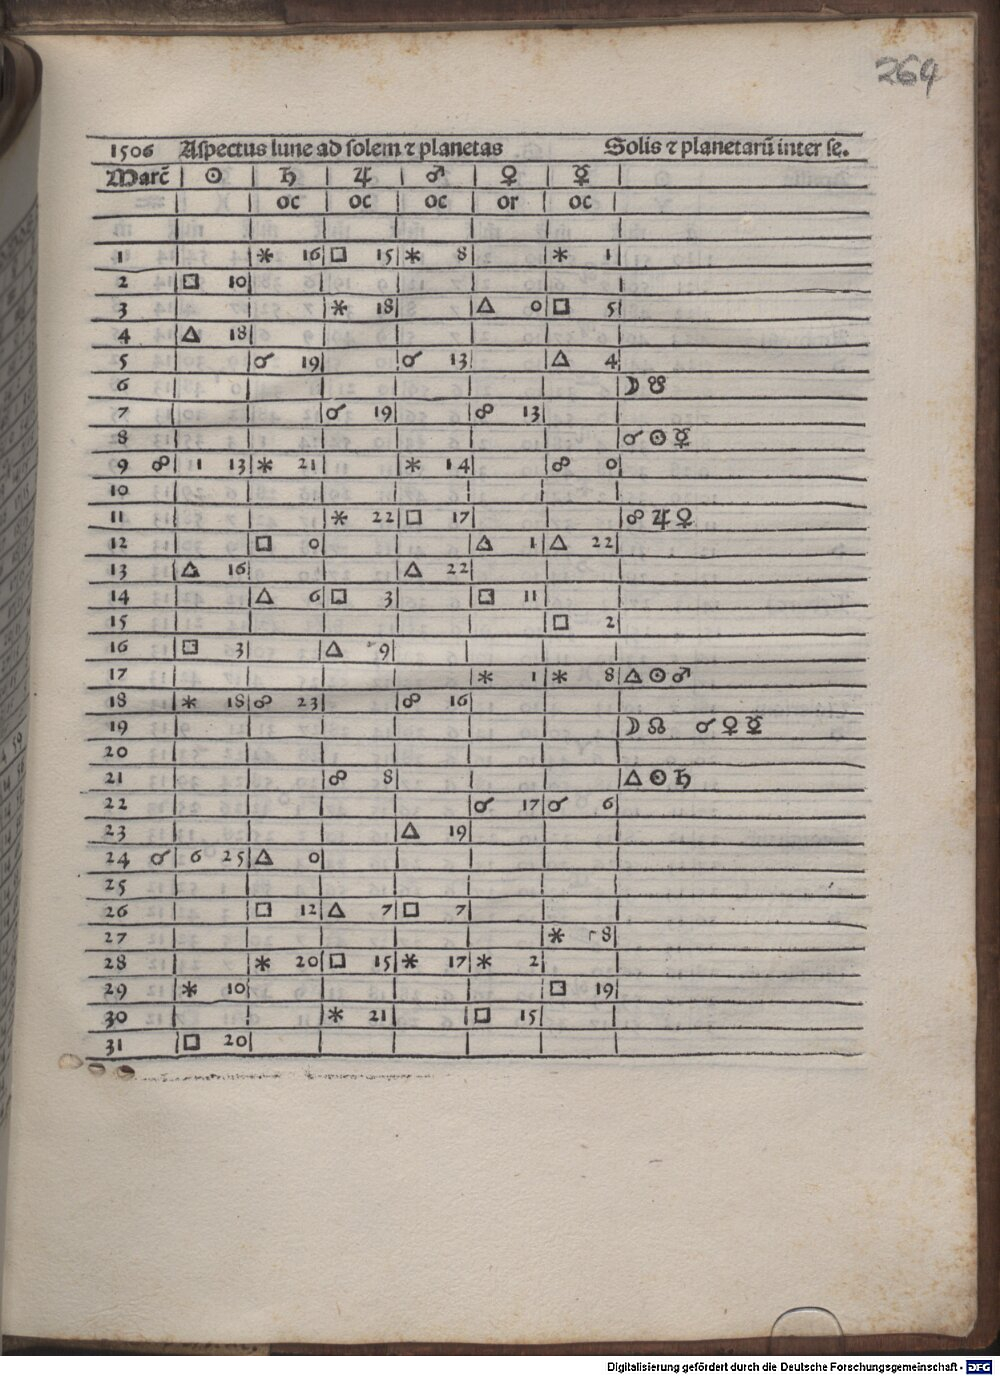 264
1506 Aspectus lune ad solem ⁊ planetas Solis ⁊ planetarū inter se.
Marc̄ ☉ ♄ ♃ ♂ ♀ ☿
oc oc oc or oc
1 ⚹ 16 □ 15 ⚹ 8 ⚹ 1
2 □ 10
3 ⚹ 18 △ 0 □ 5
4 △ 18
5 ☌ 19 ☌ 13 △ 4
6 ☽ ☋
7 ☌ 19 ☍ 13
8 ☌ ☉ ☿
9 ☍ 1 13 ⚹ 21 ⚹ 14 ☍ 0
10
11 ⚹ 22 □ 17 ☍ ♃ ♀
12 □ 0 △ 1 △ 22
13 △ 16 △ 22
14 △ 6 □ 3 □ 11
15 □ 2
16 □ 3 △ 9
17 ⚹ 1 ⚹ 8 △ ☉ ♂
18 ⚹ 18 ☍ 23 ☍ 16
19 ☽ ☊ ☌ ♀ ☿
20
21 ☍ 8 △ ☉ ♄
22 ☌ 17 ☌ 6
23 △ 19
24 ☌ 6 25 △ 0
25
26 □ 12 △ 7 □ 7
27 ⚹ 8
28 ⚹ 20 □ 15 ⚹ 17 ⚹ 2
29 ⚹ 10 □ 19
30 ⚹ 21 □ 15
31 □ 20
Digitalisierung gefördert durch die Deutsche Forschungsgemeinschaft - DFG